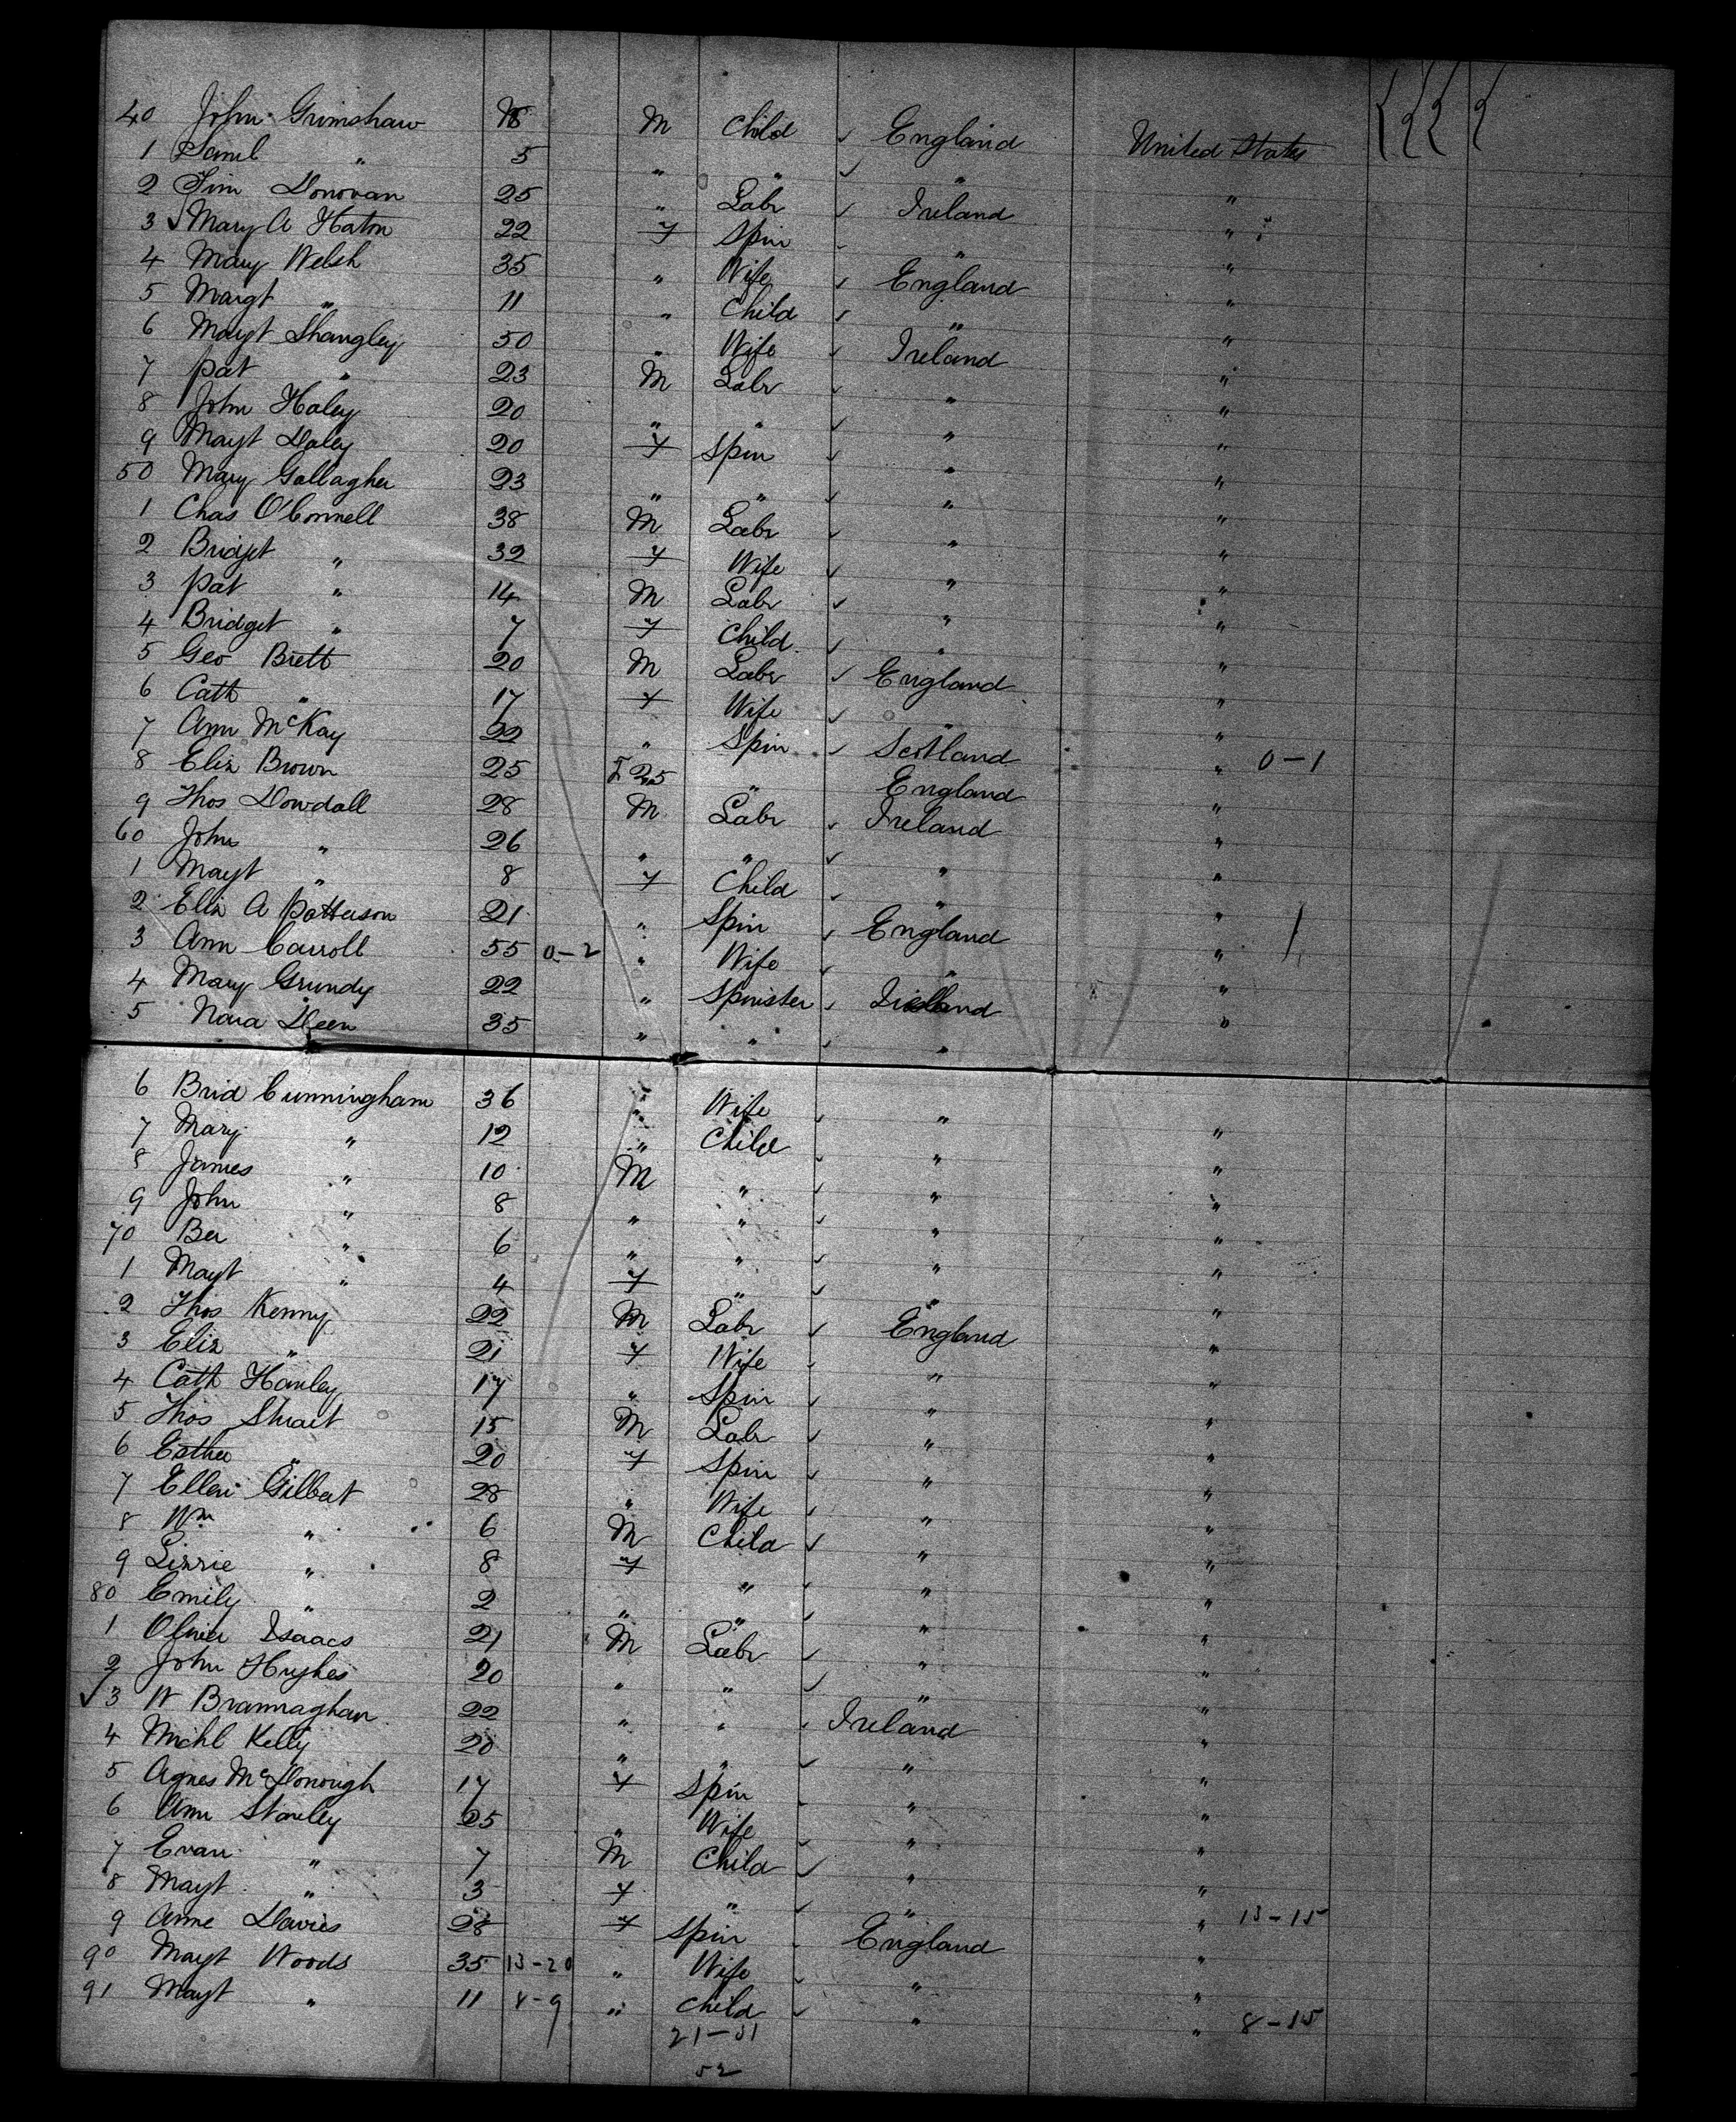 40 John Grimshaw 8 M Child ✓ England United States
1 Saml " 5 " " ✓ " "
2 Tim Donovan 25 " Labr ✓ Ireland "
3 ✓ Mary A Haton 22 F Spin ✓ " "
4 Mary Welsh 35 " Wife ✓ England "
5 Margt " 11 " Child ✓ " "
6 Margt Shangley 50 " Wife ✓ Ireland "
7 Pat " 23 M Labr ✓ " "
8 John Haley 20 " " ✓ " "
9 Margt Daley 20 F Spin ✓ " "
50 Mary Gallagher 23 " " ✓ " "
1 Chas O'Connell 38 M Labr ✓ " "
2 Bridget " 32 F Wife ✓ " "
3 Pat " 14 M Labr ✓ " "
4 Bridget " 7 F Child ✓ " "
5 Geo Brett 20 M Labr ✓ England "
6 Cath " 17 F Wife ✓ " "
7 Ann McKay 22 " Spin ✓ Scotland " 0-1
8 Eliz Brown 25 25 " England "
9 Thos Dowdall 28 M Labr ✓ Ireland "
60 John " 26 " " ✓ " "
1 Margt " 8 F Child ✓ " "
2 Eliz A Patterson 21 " Spin ✓ England "
3 Ann Carroll 55 0-2 " Wife ✓ " "
4 Mary Grundy 22 " Spinster ✓ Ireland "
5 Nora Deen 35 " " ✓ "
6 Brid Cunningham 36 " Wife ✓ " "
7 Mary " 12 " Child ✓ " "
8 James " 10 M " ✓ " "
9 John " 8 " " ✓ " "
70 Ber " 6 " " ✓ " "
1 Margt " 4 F " ✓ " "
2 Thos Kenny 22 M Labr ✓ England "
3 Eliz " 21 F Wife ✓ " "
4 Cath Hanley 17 " Spin ✓ " "
5 Thos Stuart 15 M Labr ✓ " "
6 Esther " 20 F Spin ✓ " "
7 Ellen Gilbert 28 " Wife ✓ " "
8 Wm " 6 M Child ✓ " "
9 Lizzie " 8 F " ✓ " "
80 Emily " 2 " " ✓ " "
1 Oliver Isaacs 21 M Labr ✓ " "
2 John Hughes 20 " " ✓ " "
✓ 3 W Brannaghan 22 " " ✓ Ireland "
4 Michl Kelly 20 " " ✓ " "
5 Agnes McDonough 17 F Spin ✓ " "
6 Ann Stanley 25 " Wife ✓ " "
7 Evan " 7 M Child ✓ " "
8 Margt " 3 F " ✓ " "
9 Anne Davies 28 F Spin ✓ England " 13-15
90 Margt Woods 35 13-20 " Wife ✓ " "
91 Margt " 11 8-9 " Child ✓ " " 8-15
21-31
52